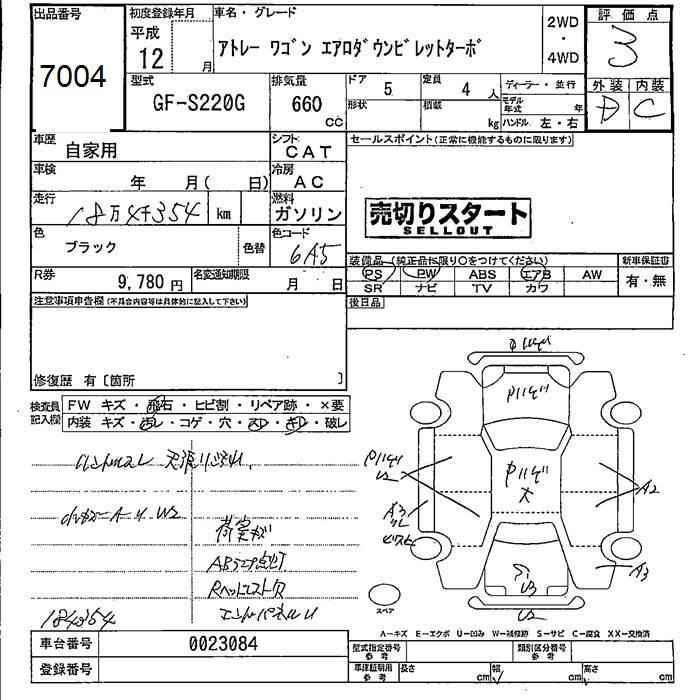 出品番号 7004
初度登録年月 平成 12 月
車名・グレード アトレー ワゴン エアロダウンビレットターボ
2WD ・ 4WD
評価点 3
外装 D 内装 C
型式 GF-S220G
排気量 660 CC
ドア 5
定員 4 人
形状
積載 kg
ディーラー・並行
モデル年式 年
ハンドル 左・右
車歴 自家用
シフト CAT
セールスポイント(正常に機能するものに限ります)
車検 年 月( 日)
冷房 AC
走行 18万4千354 km
燃料 ガソリン
売切りスタート
SELLOUT
色 ブラック 色替
色コード 6A5
装備品(純正品に限り○をつけてください)
新車保証書
PS PW ABS エアB AW
有・無
SR ナビ TV カワ
R券 9,780 円
名変通知期限 月 日
後日品
注意事項申告欄(不具合内容等は具体的に記入して下さい)
修復歴 有〔箇所 〕
検査員記入欄
FW キズ・飛石・ヒビ割・リペア跡・×要
内装 キズ・汚レ・コゲ・穴・スレ・キレ・破レ
ハンドルスレ 天張リ汚れ
A U W2
荷室キズ
ABSエア点灯
Rヘッドレスト欠
エンドパネルU
184354
Pハゲ
Pハゲ
Pハゲ
大
Pハゲ
U2
A3
A2
A3
U3
U2
スペア
A−キズ E−エクボ U−凹み W−補修跡 S−サビ C−腐食 XX−交換済
車台番号 0023084
登録番号
型式指定番号 参考
類別区分番号 参考
車庫証明用 参考
長さ cm 幅 cm 高さ cm